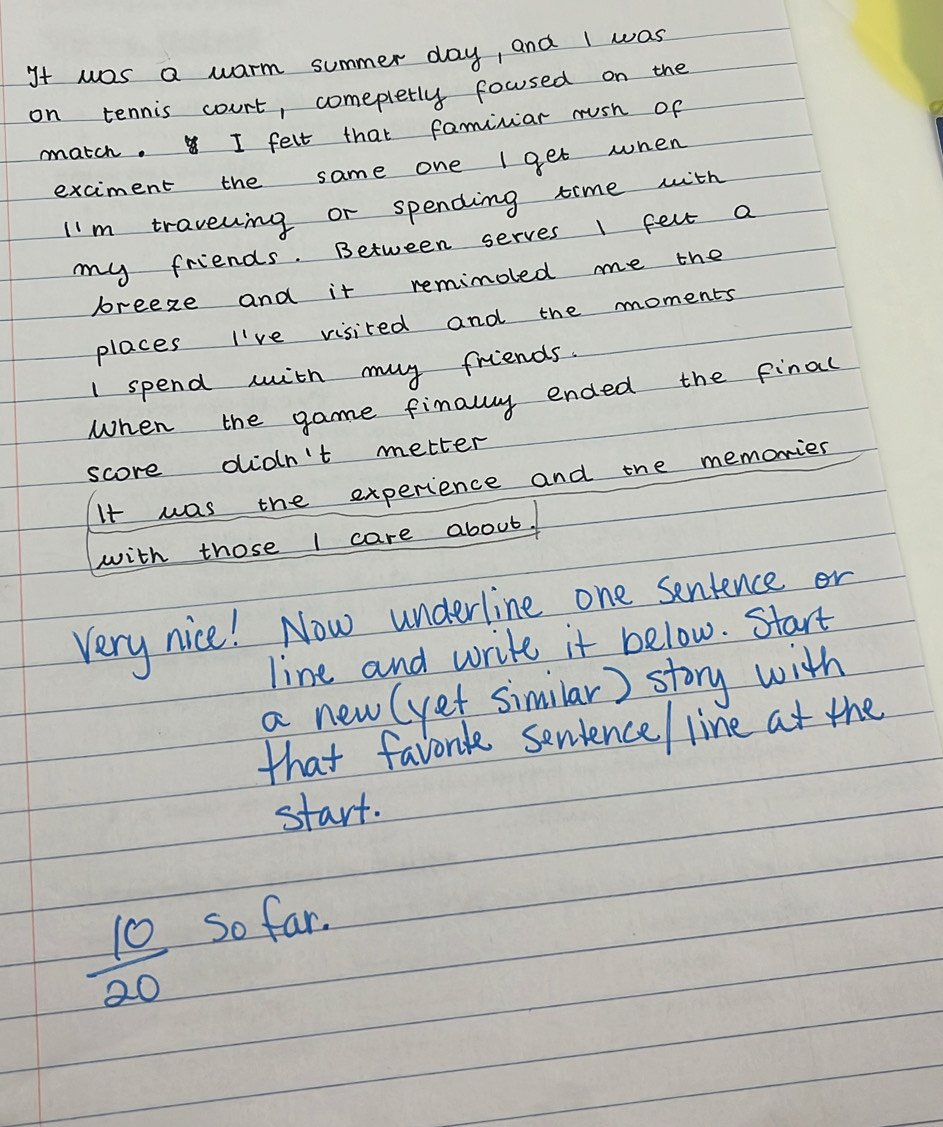 It was a warm summer day, and I was
on tennis court, comepletly focused on the
match. I felt that familiar rush of
exciment the same one I get when
I'm traveling or spending time with
my friends. Between serves I felt a
breeze and it reminded me the
places I've visited and the moments
I spend with my friends.
When the game finally ended the final
score didn't metter
It was the experience and the memories
with those I care about.
Very nice! Now underline one sentence or
line and write it below. Start
a new (yet similar) story with
that favorite sentence/line at the
start.
10/20 so far.